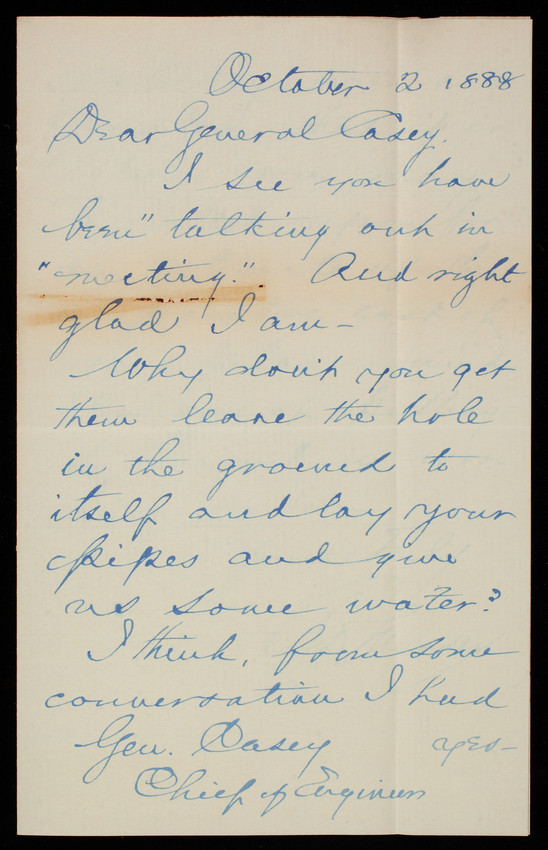 October 2 1888
Dear General Casey.
I see you have
been "talking out in
"meeting." And right
glad I am –
Why don't you get
them leave the hole
in the ground to
itself and lay your
pipes and give
us some water?
I think, from some
conversation I had
Gen. Casey yes–
Chief of Engineers